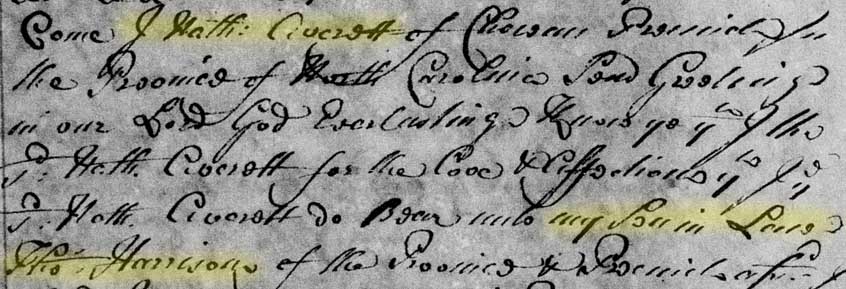 Come J Nath: Averett of Chowan Precinct In
the Province of North Carolina Send Greeting
in our Lord God Everlasting Know ye yt J the
sd. Nath. Averett for the Love & Affections yt J ye
sd. Nath. Averett do Bear unto my Son in Law
Thos: Harrison of the Province & Precinct afsd. J